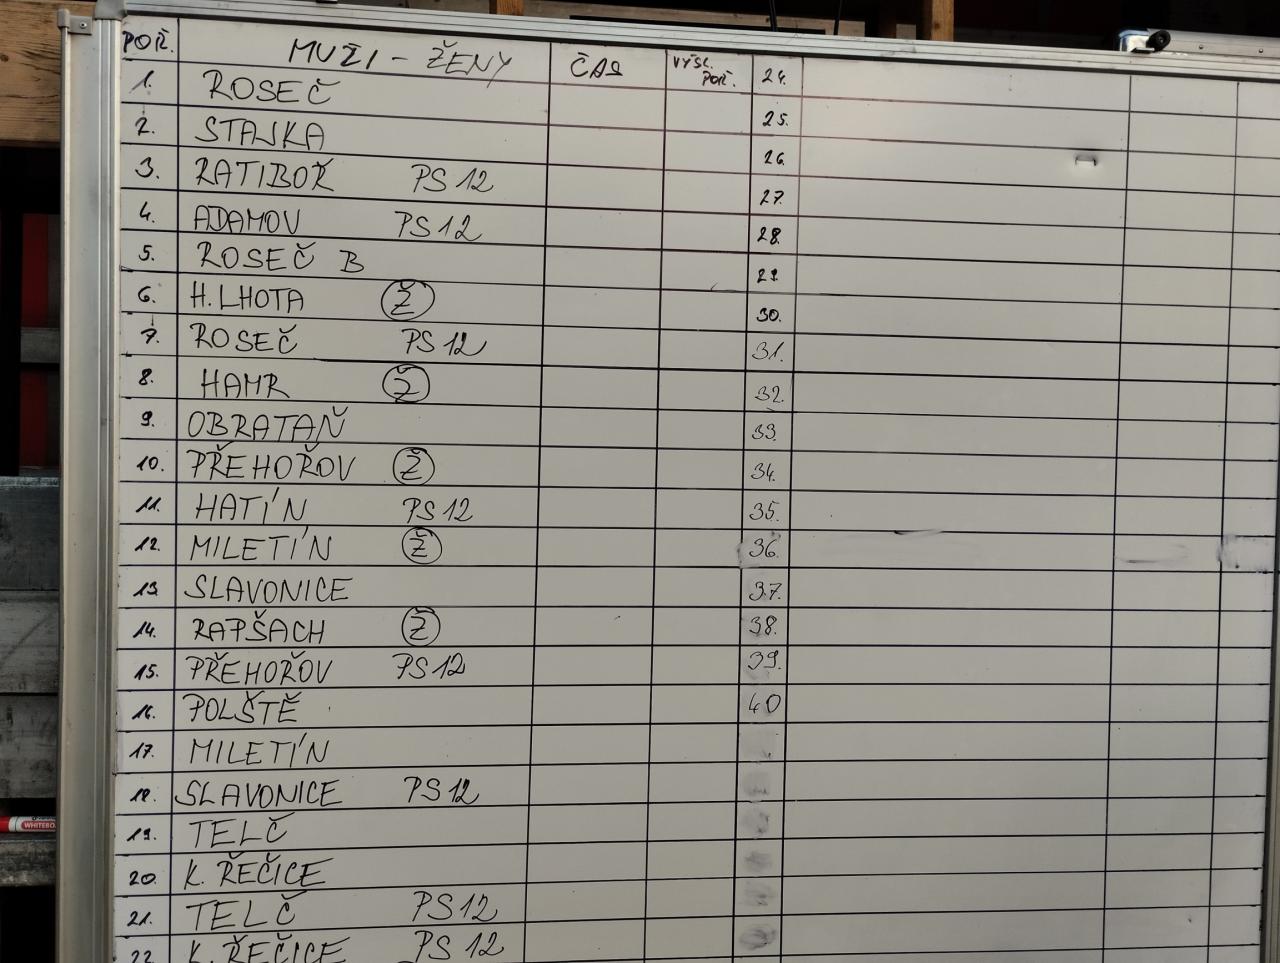 POŘ. MUŽI - ŽENY ČAS VÝSL. POŘ. 24.
1. ROSEČ 25.
2. STAJKA 26.
3. RATIBOŘ PS 12 27.
4. ADAMOV PS 12 28.
5. ROSEČ B 29.
6. H. LHOTA Ž 30.
7. ROSEČ PS 12 31.
8. HAMR Ž 32.
9. OBRATAŇ 33.
10. PŘEHOŘOV Ž 34.
11. HATÍN PS 12 35.
12. MILETÍN Ž 36.
13. SLAVONICE 37.
14. RAPŠACH Ž 38.
15. PŘEHOŘOV PS 12 39.
16. POLŠTĚ 40
17. MILETÍN
18. SLAVONICE PS 12
19. TELČ
20. K. ŘEČICE
21. TELČ PS 12
22 K. ŘEČICE PS 12
WHITEBO